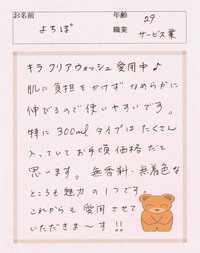 お名前 よちぽ 年齢 29
職業 サービス業
キラ クリアウォッシュ 愛用中♪
肌に負担をかけず なめらかに
伸びるので使いやすいです。
特に 300ml タイプは たくさん
入っていてお手頃価格だと
思います。無香料・無着色な
ところも魅力の1つです。
これからも 愛用 させて
いただきま〜す!!